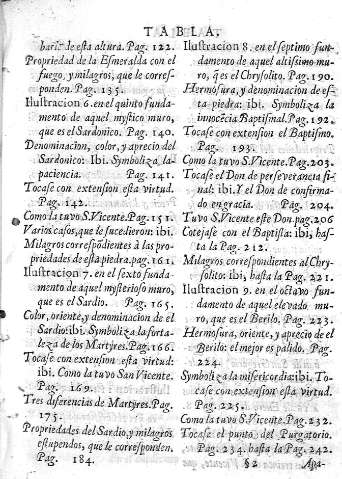 TABLA.
barl. de esta altura. Pag. 122.
Propriedad de la Esmeralda con el
fuego, y milagros, que le corres-
ponden. Pag. 135.
Ilustracion 6. en el quinto funda-
mento de aquel mystico muro,
que es el Sardonico. Pag. 140.
Denominacion, color, y aprecio del
Sardonico: Ibi. Symboliza la
paciencia. Pag. 141.
Tocase con extension esta virtud.
Pag. 142.
Como la tuvo S. Vicente. Pag. 151.
Varios casos, que le sucedieron: ibi.
Milagros correspõdientes à las pro-
priedades de esta piedra. pag. 161.
Ilustracion 7. en el sexto funda-
mento de aquel mysterioso muro,
que es el Sardio. Pag. 165.
Color, oriente, y denominacion de el
Sardio: ibi. Symboliza la forta-
leza de los Martyres. Pag. 166.
Tocase con extension esta virtud:
ibi. Como la tuvo San Vicente.
Pag. 169.
Tres diferencias de Martyres. Pag.
175.
Propriedades del Sardio, y milagros
estupendos, que le corresponden.
Pag. 184.
Ilustracion 8. en el septimo fun-
damento de aquel altissimo mu-
ro, q̃ es el Chrysolito. Pag. 190.
Hermosura, y denominacion de es-
ta piedra: ibi. Symboliza la
innocẽcia Baptismal. Pag. 192.
Tocase con extension el Baptismo.
Pag. 193.
Como la tuvo S. Vicente. Pag. 203.
Tocase el Don de perseverancia fi-
nal: ibi. Y el Don de confirma-
do en gracia. Pag. 204.
Tuvo S. Vicente este Don. pag. 206
Cotejase con el Baptista: ibi, has-
ta la Pag. 212.
Milagros correspondientes al Chry-
solito: ibi, hasta la Pag. 221.
Ilustracion 9. en el octavo fun-
damento de aquel elevado mu-
ro, que es el Berilo. Pag. 223.
Hermosura, oriente, y aprecio de el
Berilo: el mejor es palido. Pag.
224.
Symboliza la misericordia: ibi. To-
case con extension esta virtud.
Pag. 225.
Como la tuvo S. Vicente. Pag. 232.
Tocase el punto del Purgatorio.
Pag. 234. hasta la Pag. 242.
§ 2 Apa-